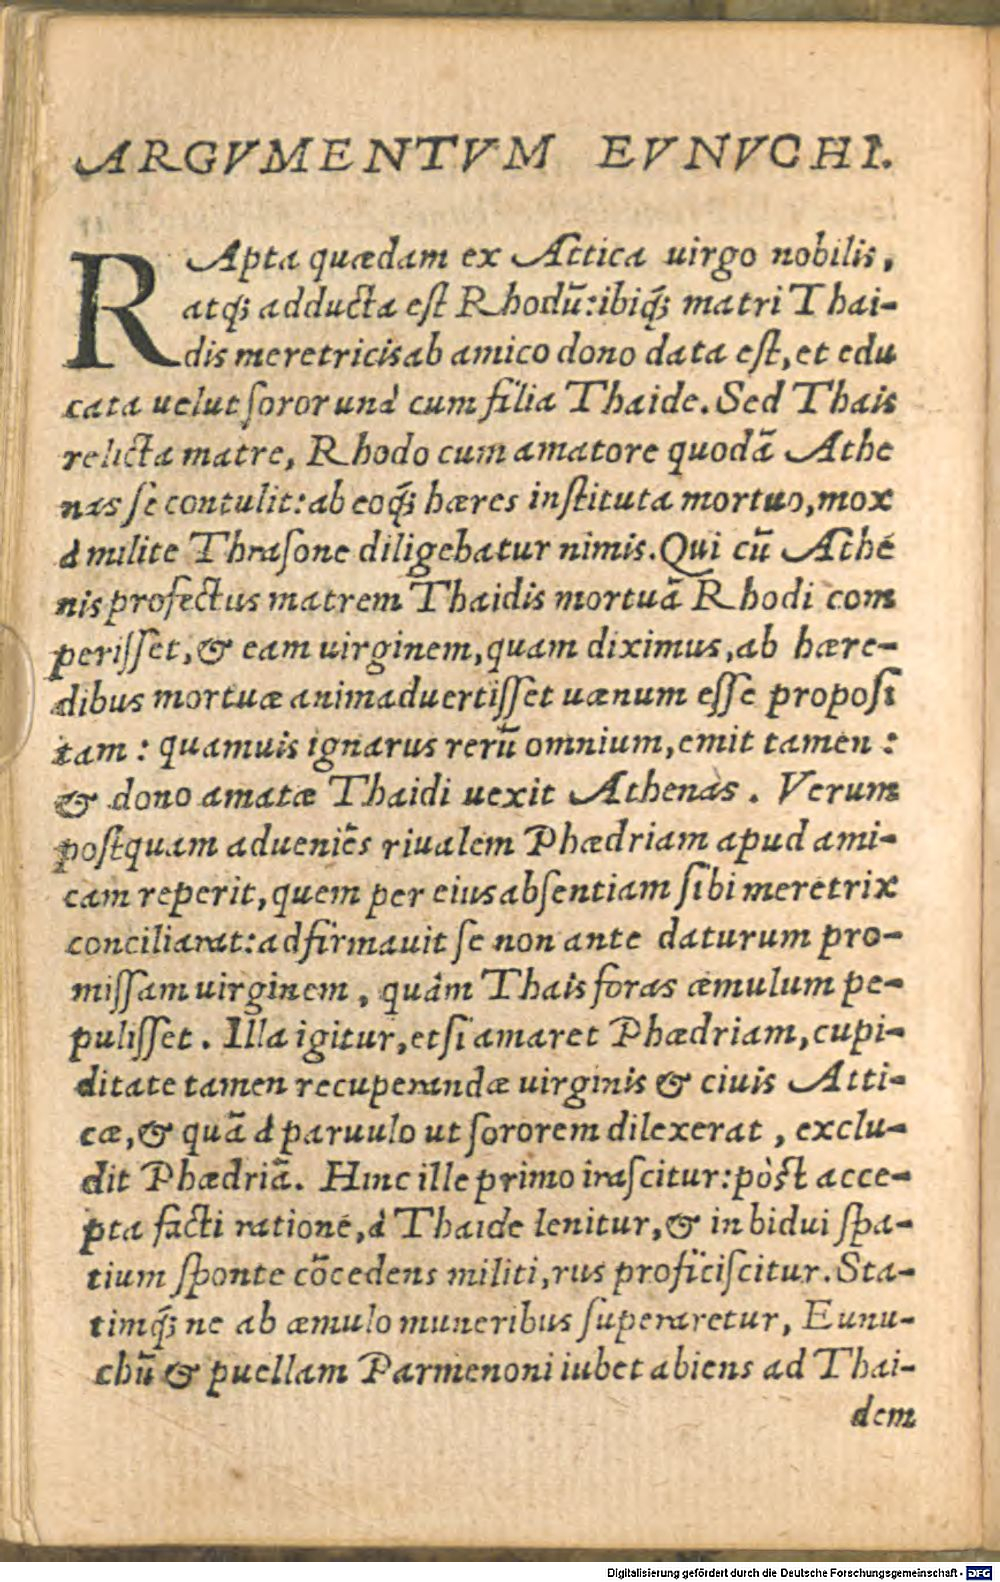 ARGVMENTVM EVNVCHI.
RApta quædam ex Attica uirgo nobilis,
atq; adducta est Rhodū: ibiq; matri Thai-
dis meretricis ab amico dono data est, et edu
cata uelut soror unà cum filia Thaide. Sed Thais
relicta matre, Rhodo cum amatore quodā Athe
nas se contulit: ab eoq; hæres instituta mortuo, mox
à milite Thrasone diligebatur nimis. Qui cū Athē
nis profectus matrem Thaidis mortuā Rhodi com
perisset, & eam uirginem, quam diximus, ab hære-
dibus mortuæ animaduertisset uænum esse proposi
tam: quamuis ignarus rerū omnium, emit tamen:
& dono amatæ Thaidi uexit Athenas. Verum
postquam adueniēs riualem Phædriam apud ami-
cam reperit, quem per eius absentiam sibi meretrix
conciliarat: adfirmauit se non ante daturum pro-
missam uirginem, quàm Thais foras æmulum pe-
pulisset. Illa igitur, etsi amaret Phædriam, cupi-
ditate tamen recuperandæ uirginis & ciuis Atti-
cæ, & quā à paruulo ut sororem dilexerat, exclu-
dit Phædriā. Hinc ille primo irascitur: pòst acce-
pta facti rationē, à Thaide lenitur, & in bidui spa-
tium sponte cōcedens militi, rus proficiscitur. Sta-
timq; ne ab æmulo muneribus superaretur, Eunu-
chū & puellam Parmenoni iubet abiens ad Thai-
dem
Digitalisierung gefördert durch die Deutsche Forschungsgemeinschaft - DFG